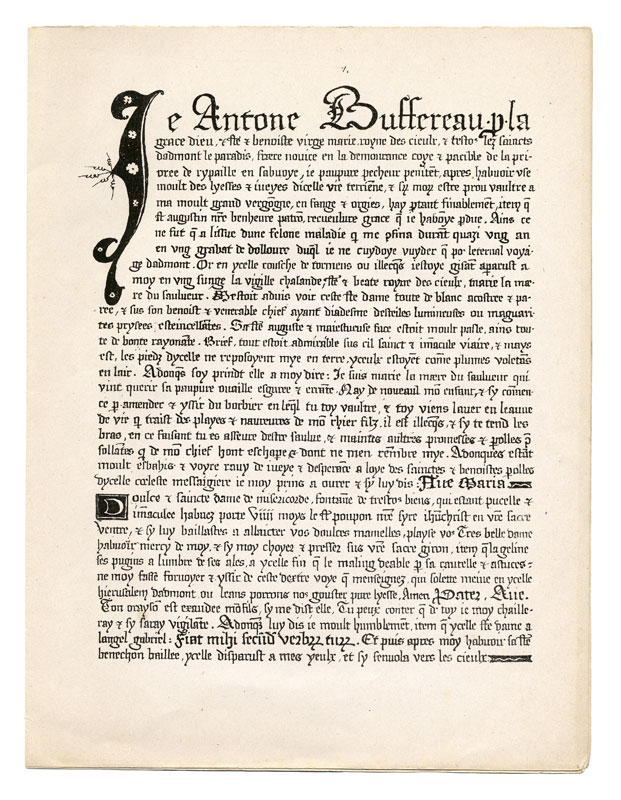 Je Antone Buffereau p la
grace dieu, & ste & benoiste virge marie royne des cieulx, & trestos les saincts
dadmont le paradis, frere novice en la demourance coye & pacible de la pri-
oree de rypaille en sabuoye, ie paupure pecheur penitet, apres habuoir use
moult des lyesses & iueyes dicelle vie terriene, & sy moy estre prou vaultre a
ma moult grand vergogne, en fange & orgies, hay ptant finablement, item q
st augustin nre benheure patro, recueulure grace q ie haboye pdue. Ains ce
ne fut q a lissue dune felone maladie q me psina durant quazi ung an
en ung grabat de dolloure duql ie ne cuydoye vuyder q po leternal voya-
ge dadmont. Or en ycelle cousche de tormens ou illecqs iestoye gisat aparust a
moy en ung sunge la vigille chalande ste & beate royne des cieulx, marie la mæ-
re du saulueur. Mestoit aduis voir ceste ste dame toute de blanc acostree & pa-
ree, & sus son benoist & venerable chief ayant diadesme destelles lumineuses ou maguari-
tes prysees esteincellates. Sa ste auguste & maiestueuse face estoit moult pasle, ains tou-
te de bonte rayonate. Brief, tout estoit admirable sus cil sainct & imacule viaire, & mays
est, les piedz dycelle ne reposoyent mye en terre, yceulx estoyet come plumes voletas
en lair. Adonqs soy prindt elle a moy dire: Je suis marie la mære du saulueur qui
vint querir sa paupure ouaille esguree & errate. May de noueaul mo enfant, & sy comen-
ce p amender & yssir du borbier en leql tu toy vaultre, & toy viens lauer en leauue
de vie q traist des playes & naureures de mo chier filz, il est illecqs, & sy te tend les
bras, en ce faisant tu es asseure destre saulue, & maintes aultres promesses & polles p
sollates q de mo chief hont eschape & dont ne men remebre mye. Adonques estat
moult esbahis & voyre rauy de iueye & desperace a loye des sainctes & benoistes polles
dycelle cœleste messaigiere ie moy prins a ourer & sy luy dis: Aue Maria
Doulce & saincte dame de misericorde, fontaine de trestos biens, qui estant pucelle &
imaculee habuez porte Viiij moys le st poupon nre syre ihuchrist en vre sacre
ventre, & sy luy baillastes a allaicter vos doulces mamelles, playse vo Tres belle dame
habuoir mercy de moy, & sy moy choyez & pressez sus vre sacre giron, item q la geline
ses pugins a lumbre de ses ales, a ycelle fin q le maling deable p sa cautelle & astuces
ne moy fasse foruoyer & yssir de ceste dextre voye q menseignez, qui solette meine en ycelle
hierusalem dadmont ou leans porrons nos gouster pure lyesse. Amen Pater, Aue.
Ton orayson est exaudee mo fils, sy me dist elle, Tu peuz conter q d toy ie moy chaille-
ray & sy saray vigilate. Adonqs luy dis ie moult humblement, item q ycelle ste dame a
langel gabriel: Fiat mihi secund verbu tuu. Et puis apres moy habuoir sa ste
benechon baillee, ycelle disparust a mes yeulx, et sy senuola vers les cieulx